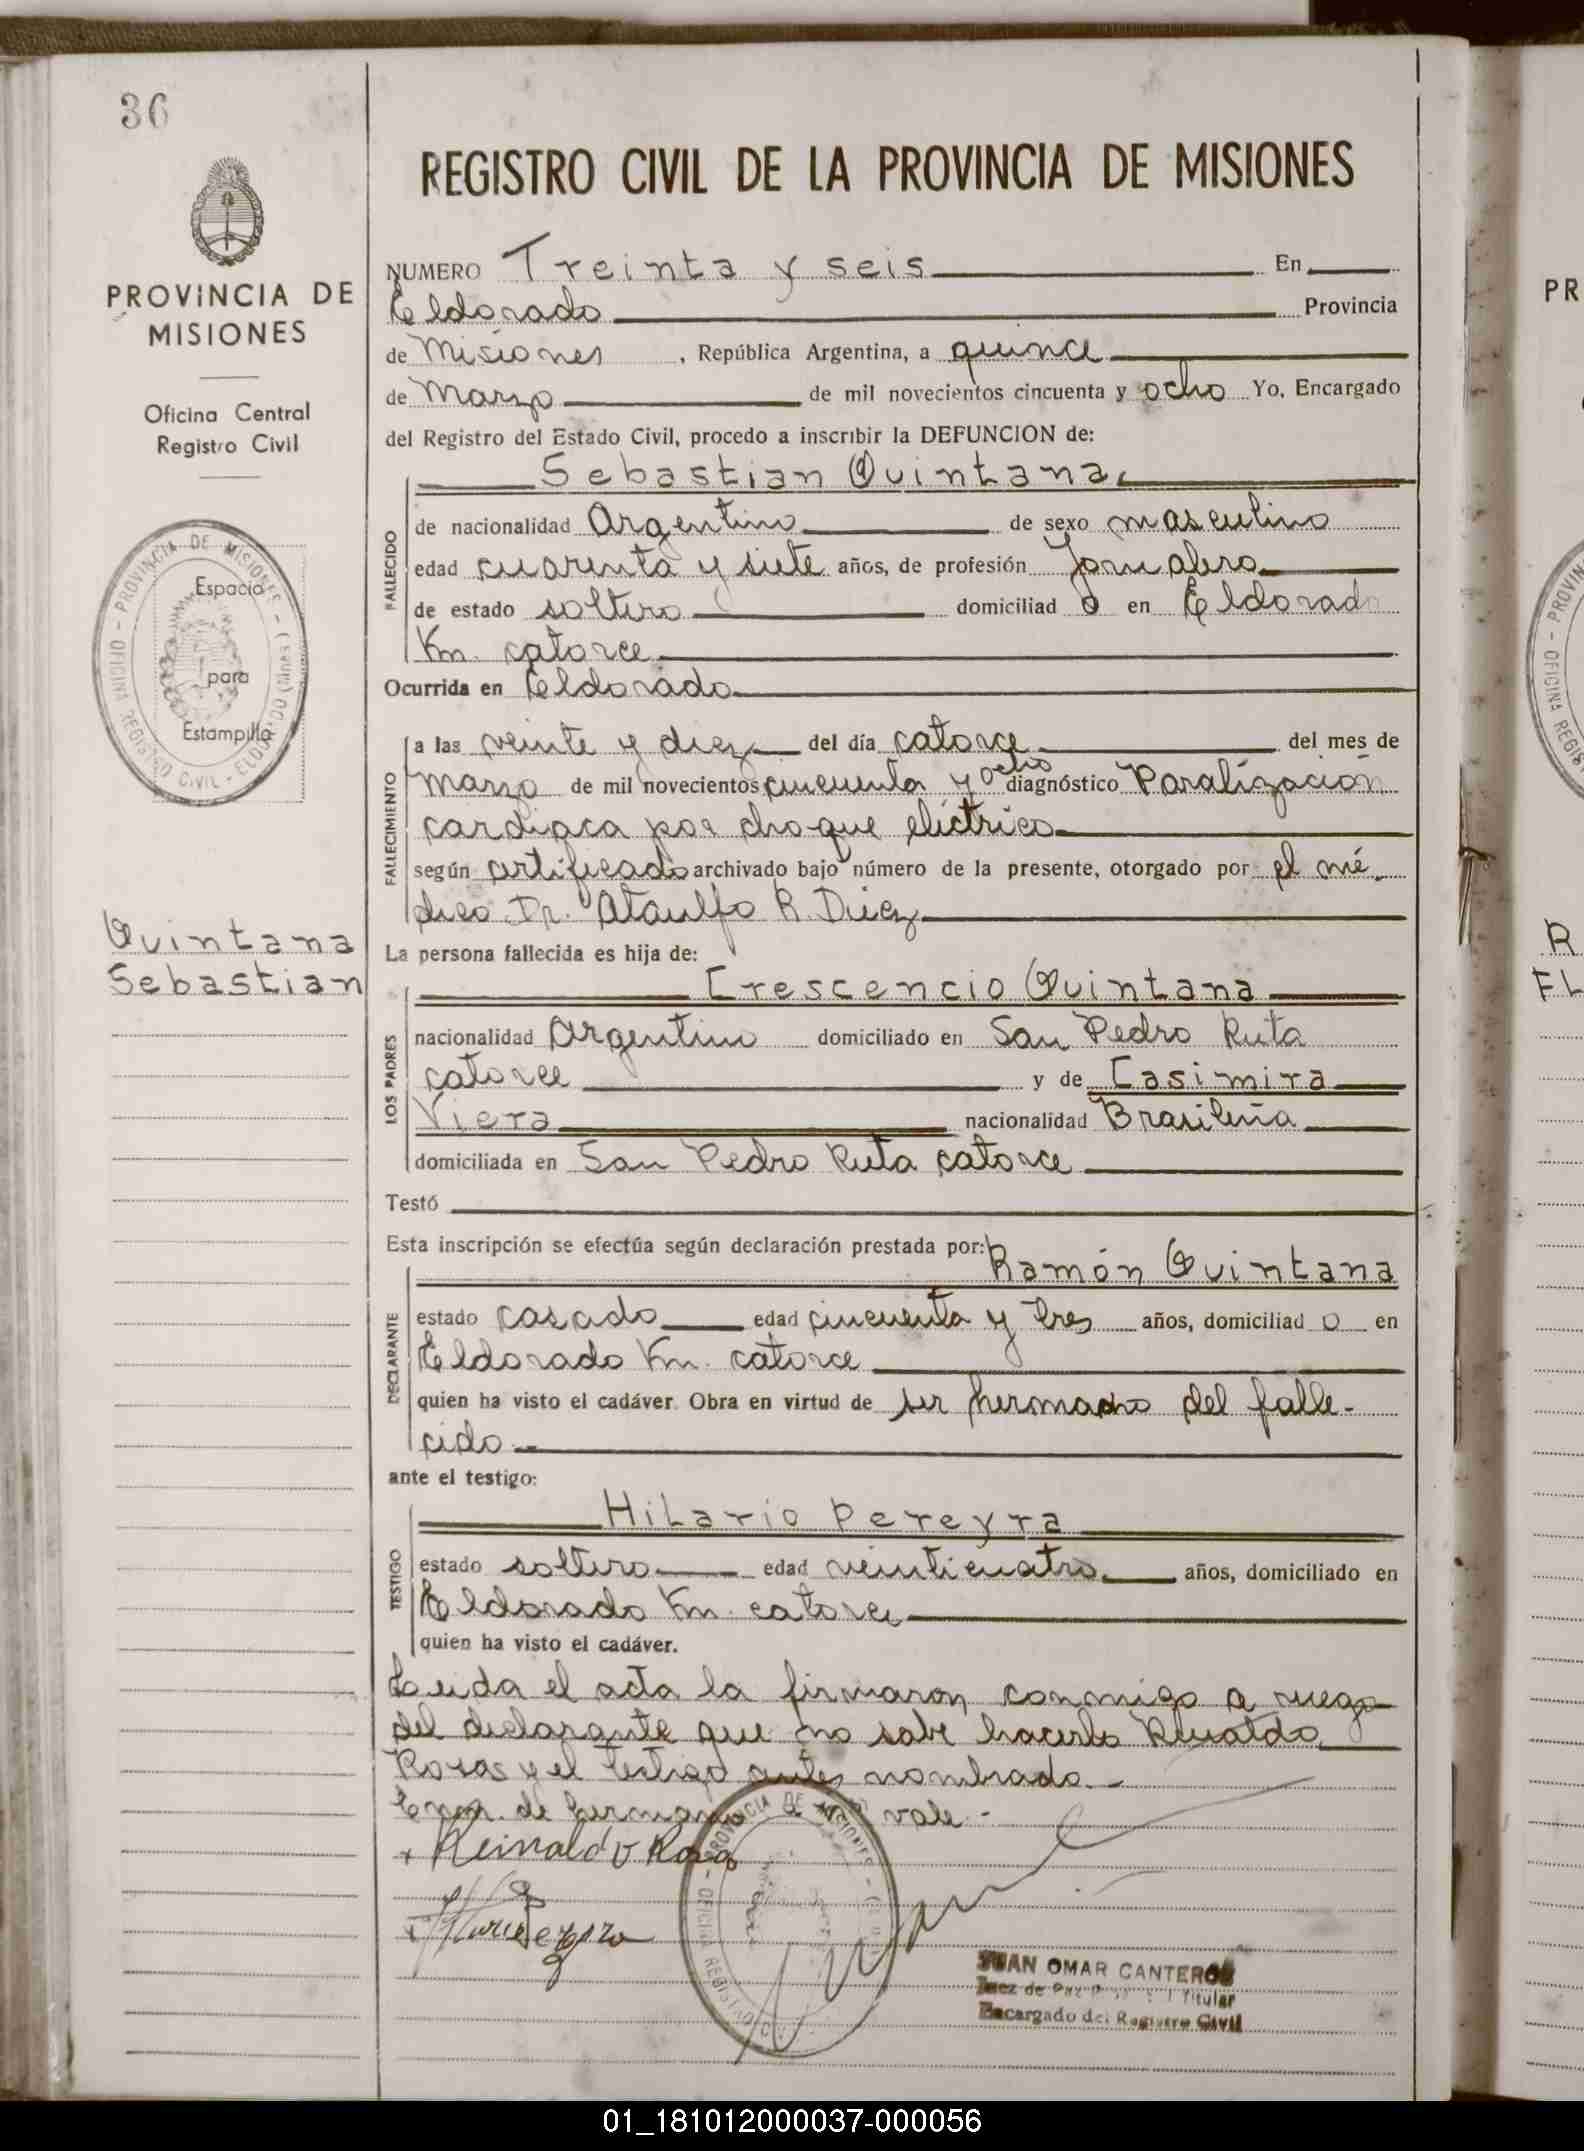 36
PROVINCIA DE
MISIONES
Oficina Central
Registro Civil
Espacio
para
Estampilla
PROVINCIA DE MISIONES
OFICINA REGISTRO CIVIL - ELDORADO (Mnes.)
Quintana
Sebastian
REGISTRO CIVIL DE LA PROVINCIA DE MISIONES
NUMERO Treinta y seis En
Eldorado Provincia
de Misiones, República Argentina, a quince
de Marzo de mil novecientos cincuenta y ocho Yo, Encargado
del Registro del Estado Civil, procedo a inscribir la DEFUNCION de:
Sebastian Quintana
FALLECIDO
de nacionalidad Argentino de sexo masculino
edad cuarenta y siete años, de profesión Jornalero
de estado soltero domiciliad o en Eldorado
Km. catorce
Ocurrida en Eldorado
FALLECIMIENTO
a las veinte y diez del día catorce del mes de
marzo de mil novecientos cincuenta y ocho diagnóstico Paralización
cardiaca por choque eléctrico
según certificado archivado bajo número de la presente, otorgado por el mé-
dico Dr. Ataulfo R. Diez
La persona fallecida es hija de:
Crescencio Quintana
LOS PADRES
nacionalidad Argentino domiciliado en San Pedro Ruta
catorce y de Casimira
Viera nacionalidad Brasileña
domiciliada en San Pedro Ruta catorce
Testó
Esta inscripción se efectúa según declaración prestada por:
Ramón Quintana
DECLARANTE
estado casado edad cincuenta y tres años, domiciliad o en
Eldorado Km. catorce
quien ha visto el cadáver. Obra en virtud de ser hermano del falle-
cido.-
ante el testigo:
Hilario Pereyra
TESTIGO
estado soltero edad veinticuatro años, domiciliado en
Eldorado Km. catorce
quien ha visto el cadáver.
Leida el acta la firmaron conmigo a ruego
del declarante que no sabe hacerlo Reinaldo
Rosas y el testigo antes nombrado.-
vale.-
Reinaldo Rosas
PROVINCIA DE MISIONES
OFICINA REGISTRO
JUAN OMAR CANTEROS
Juez de Paz Titular
Encargado del Registro Civil
PR
R
FL
01_181012000037-000056